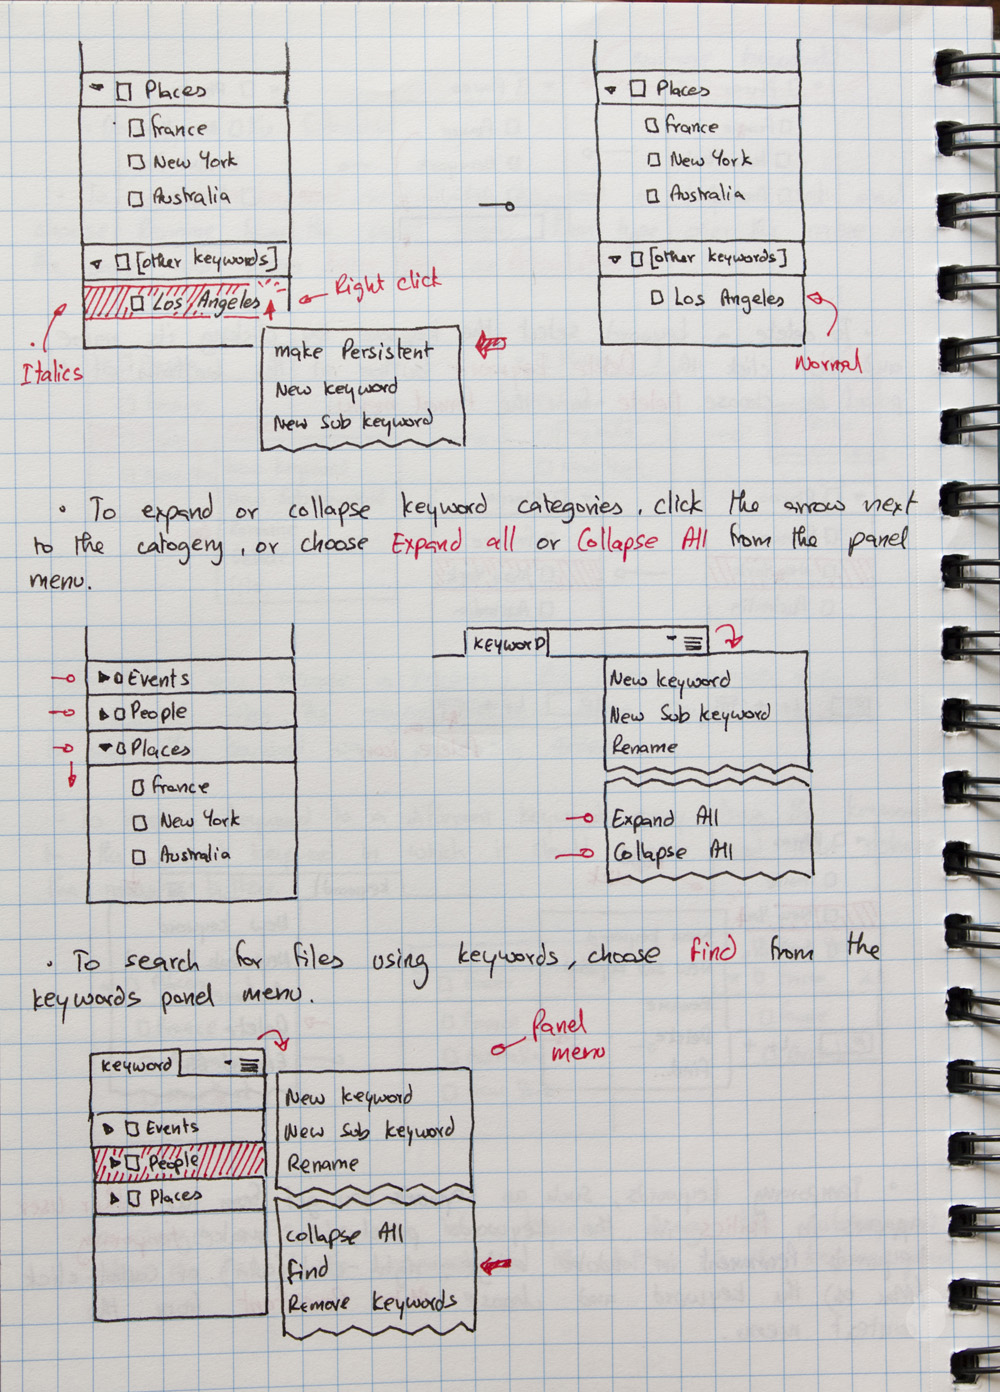 Places
France
New York
Australia
[other keywords]
Los Angeles
Italics
Right click
make Persistent
New keyword
New Sub keyword
Places
France
New York
Australia
[other keywords]
Los Angeles
Normal
• To expand or collapse keyword categories, click the arrow next
to the catogery, or choose Expand all or Collapse All from the panel
menu.
Events
People
Places
France
New York
Australia
KEYWORD
New keyword
New Sub keyword
Rename
Expand All
Collapse All
• To search for files using keywords, choose find from the
keywords panel menu.
Keyword
Events
People
Places
Panel
menu
New keyword
New Sub keyword
Rename
Collapse All
find
Remove keywords